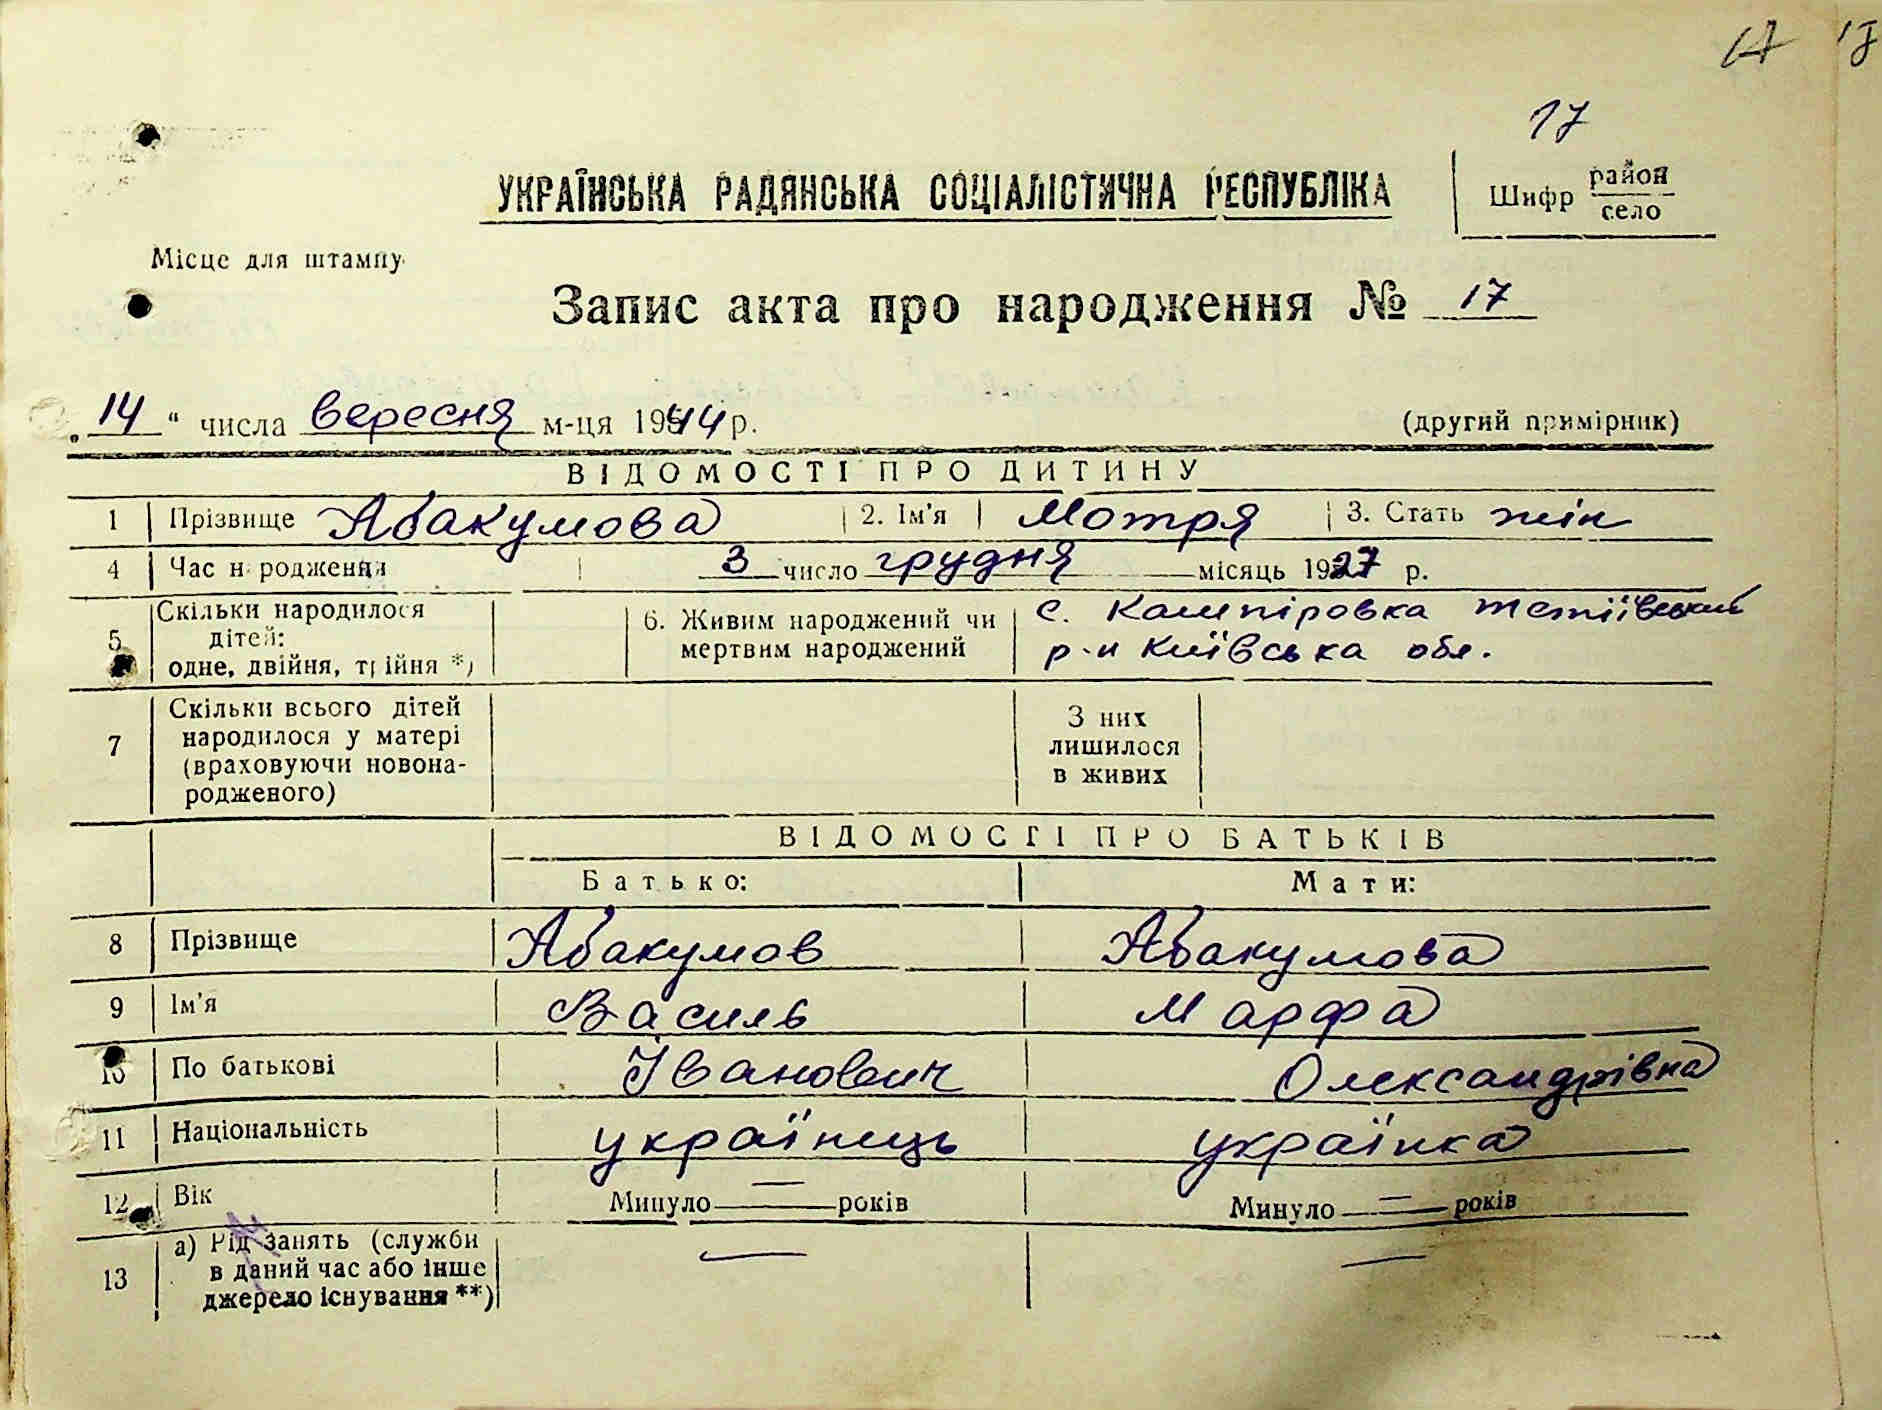 17 17
17
УКРАЇНСЬКА РАДЯНСЬКА СОЦІАЛІСТИЧНА РЕСПУБЛІКА
Шифр район
село
Місце для штампу
Запис акта про народження № 17
„14“ числа вересня м-ця 1944 р. (другий примірник)
ВІДОМОСТІ ПРО ДИТИНУ
1 Прізвище Абакумова 2. Ім'я Мотря 3. Стать жін
4 Час народження 3 число грудня місяць 1927 р.
5 Скільки народилося дітей: одне, двійня, трійня *)
6. Живим народжений чи мертвим народжений
с. Кашпіровка тетіївський
р-н Київська обл.
7 Скільки всього дітей народилося у матері (враховуючи новонародженого)
З них лишилося в живих
ВІДОМОСТІ ПРО БАТЬКІВ
Батько: Мати:
8 Прізвище Абакумов Абакумова
9 Ім'я Василь Марфа
10 По батькові Іванович Олександрівна
11 Національність українець українка
12 Вік Минуло — років Минуло — років
13 а) Рід занять (служби в даний час або інше джерело існування **) — —